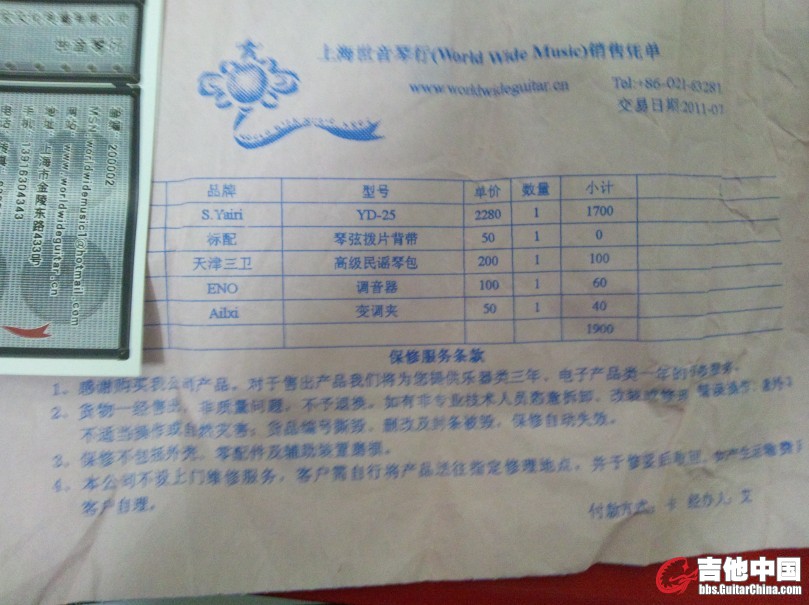 上海世音琴行(World Wide Music)销售凭单
www.worldwideguitar.cn
Tel:+86-021-63281
交易日期2011-07
品牌 型号 单价 数量 小计
S.Yairi YD-25 2280 1 1700
标配 琴弦拨片背带 50 1 0
天津三卫 高级民谣琴包 200 1 100
ENO 调音器 100 1 60
Ailxi 变调夹 50 1 40
1900
保修服务条款
1、感谢购买我公司产品。对于售出产品我们将为您提供乐器类三年,电子产品类一年的
2、货物一经售出,非质量问题,不予退换。如有非专业技术人员随意拆卸、改装
不适当操作或自然灾害;货品编号撕毁、删改及封条被毁,保修自动失效。
3、保修不包括外壳、零配件及辅助装置磨损。
4、本公司不设上门维修服务,客户需自行将产品送往指定修理地点,并于修妥后取回,如产生运输费
客户自理。
付款方式:卡 经办人:艾
编号 200002
MSN worldwidemusic1@hotmail.com
网站 www.worldwideguitar.cn
地址 上海市金陵东路433号
手机 13916304343
吉他中国
bbs.GuitarChina.com